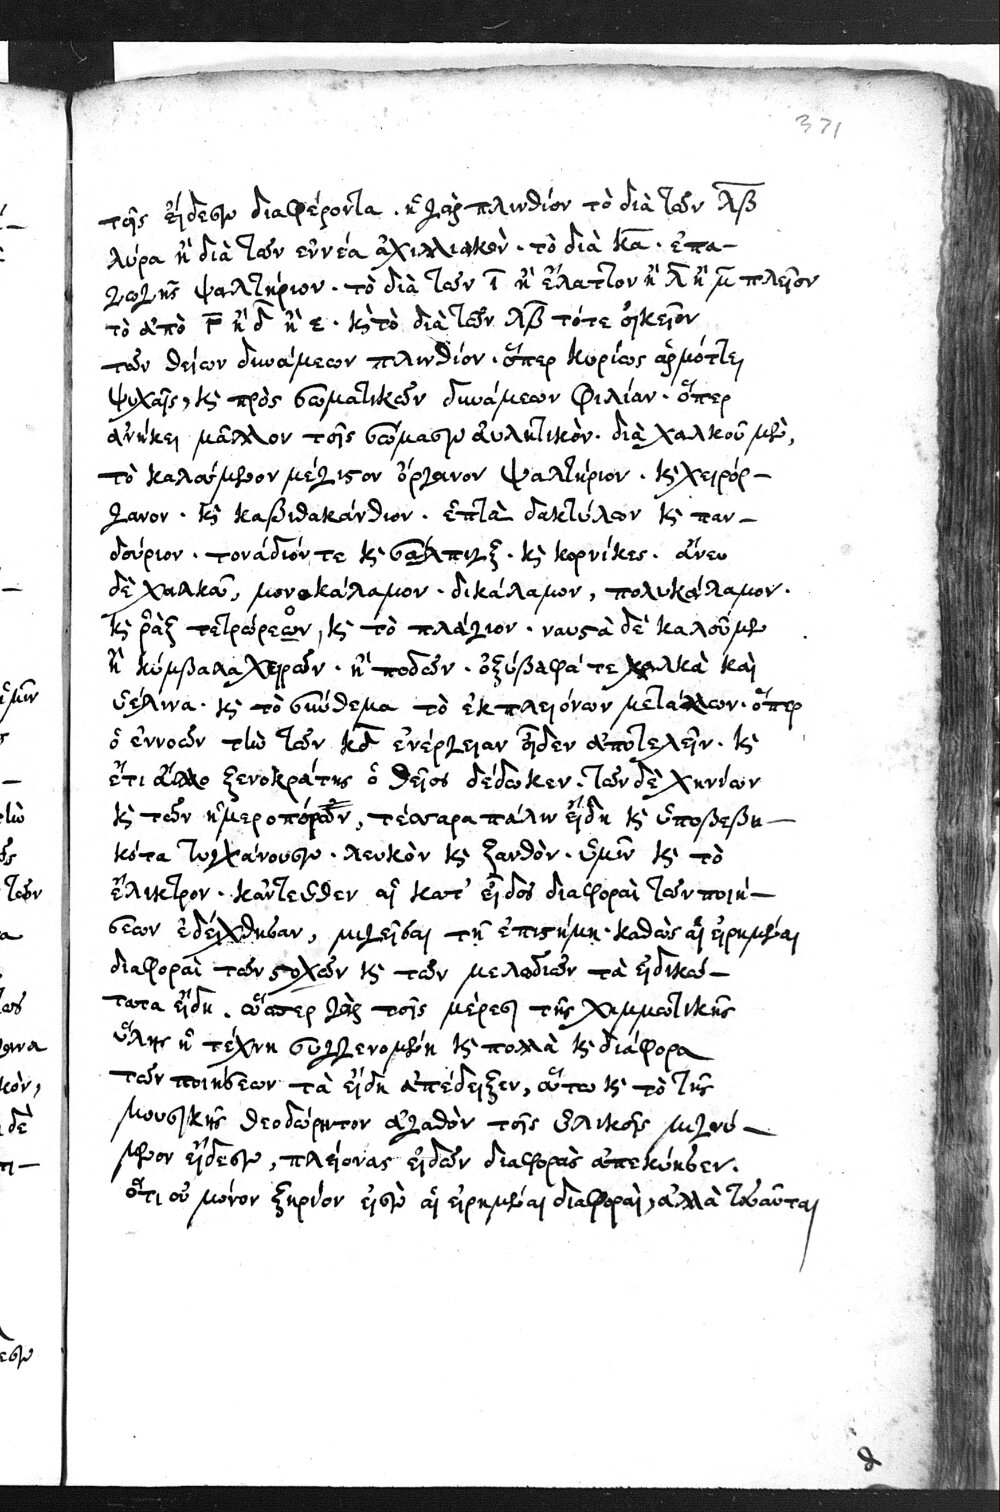 371
τοῖς εἴδεσιν διαφέροντα. ἢ γὰρ πλινθίον τὸ διὰ τῶν λβ
λύρα ἢ διὰ τῶν εννέα ἀχιλλιακὸν. τὸ διὰ κα. επα-
γωγῆς ψαλτήριον. τὸ διὰ τῶν ι ἢ ἔλαττον ἢ λ ἢ μ πλεῖον
τὸ ἀπὸ γ ἢ δ ἢ ε. κὶ τὸ διὰ τῶν λβ τότε οἰκεῖον
τῶν θείων δυνάμεων πλινθίον. ὅπερ κυρίως ἁρμόττει
ψυχαῖς, κὶ πρὸς σωματικῶν δυνάμεων φιλίαν. ὅπερ
ἀνήκει μᾶλλον τοῖς σώμασιν αὐλητικὸν. διὰ χαλκοῦ μὲν,
τὸ καλούμενον μέγιστον ὄργανον ψαλτήριον. κὶ χειρόρ-
γανον. κὶ καβιθακάνθιον. ἑπτὰ δακτύλων κὶ παν-
δούριον. τονάδιόν τε κὶ σάλπιγξ. κὶ κορνίκες. ἄνευ
δὲ χαλκοῦ, μονοκάλαμον. δικάλαμον, πολυκάλαμον.
κὶ ῥὰξ τετρώρεον, κὶ τὸ πλάγιον. ναυστὰ δὲ καλοῦμεν
ἢ κύμβαλα χειρῶν. ἢ ποδῶν. ὀξύβαφά τε χαλκὰ καὶ
ὑέλινα. κὶ τὸ σύνθεμα τὸ ἐκ πλειόνων μετάλλων. ὅπερ
ὁ ἐννοῶν τὴν τῶν κδ ἐνέργειαν οἶδεν ἀποτελεῖν. κὶ
ἔτι ἄλλο ξενοκράτης ὁ θεῖος δέδωκεν. τῶν δὲ χηνίων
κὶ τῶν ἡμεροπόρων, τέσσαρα πάλιν εἴδη κὶ ὑποβεβη-
κότα τυγχάνουσιν. λευκὸν κὶ ξανθὸν. ὑμὴν κὶ τὸ
ἔλικτρον. κἀντεῦθεν αἱ κατ' εἶδος διαφοραὶ τῶν ποιή-
σεων ἐδείχθησαν, μιγεῖσαι τῇ ἐπιστήμῃ. καθὼς αἱ εἰρημέναι
διαφοραὶ τῶν στοχῶν κὶ τῶν μελωδιῶν τὰ εἰδικώ-
τατα εἴδη. ὥσπερ γὰρ τοῖς μέρεσι τῆς χιμμωτικῆς
ὕλης ἡ τέχνη συγγενομένη κὶ πολλὰ κὶ διάφορα
τῶν ποιήσεων τὰ εἴδη ἀπέδειξεν, οὕτω κὶ τὸ τῆς
μουσικῆς θεοδώρητον ἀγαθὸν τοῖς ὑλικοῖς μιγνύ-
μενον εἴδεσιν, πλείονας εἰδῶν διαφορὰς ἀπεκύησεν.
ὅτι οὐ μόνον ξηρίον εἰσὶν αἱ εἰρημέναι διαφοραὶ, ἀλλὰ τοιαῦται